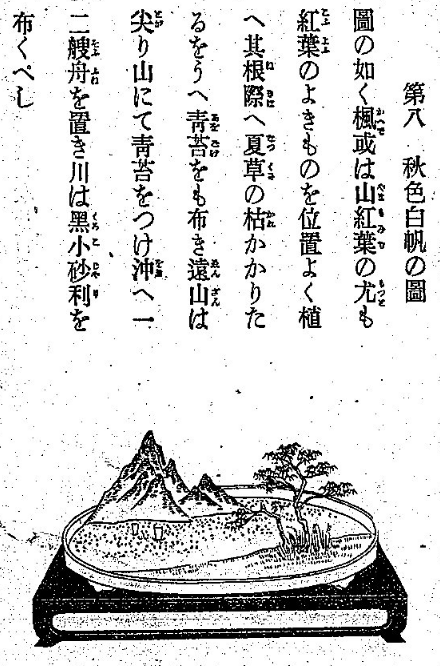 第八　秋色白帆の圖
圖の如く楓或は山紅葉の尤も
紅葉のよきものを位置よく植
へ其根際へ夏草の枯かかりた
るをうへ靑苔をも布き遠山は
尖り山にて靑苔をつけ沖へ一
二艘舟を置き川は黑小砂利を
布くべし